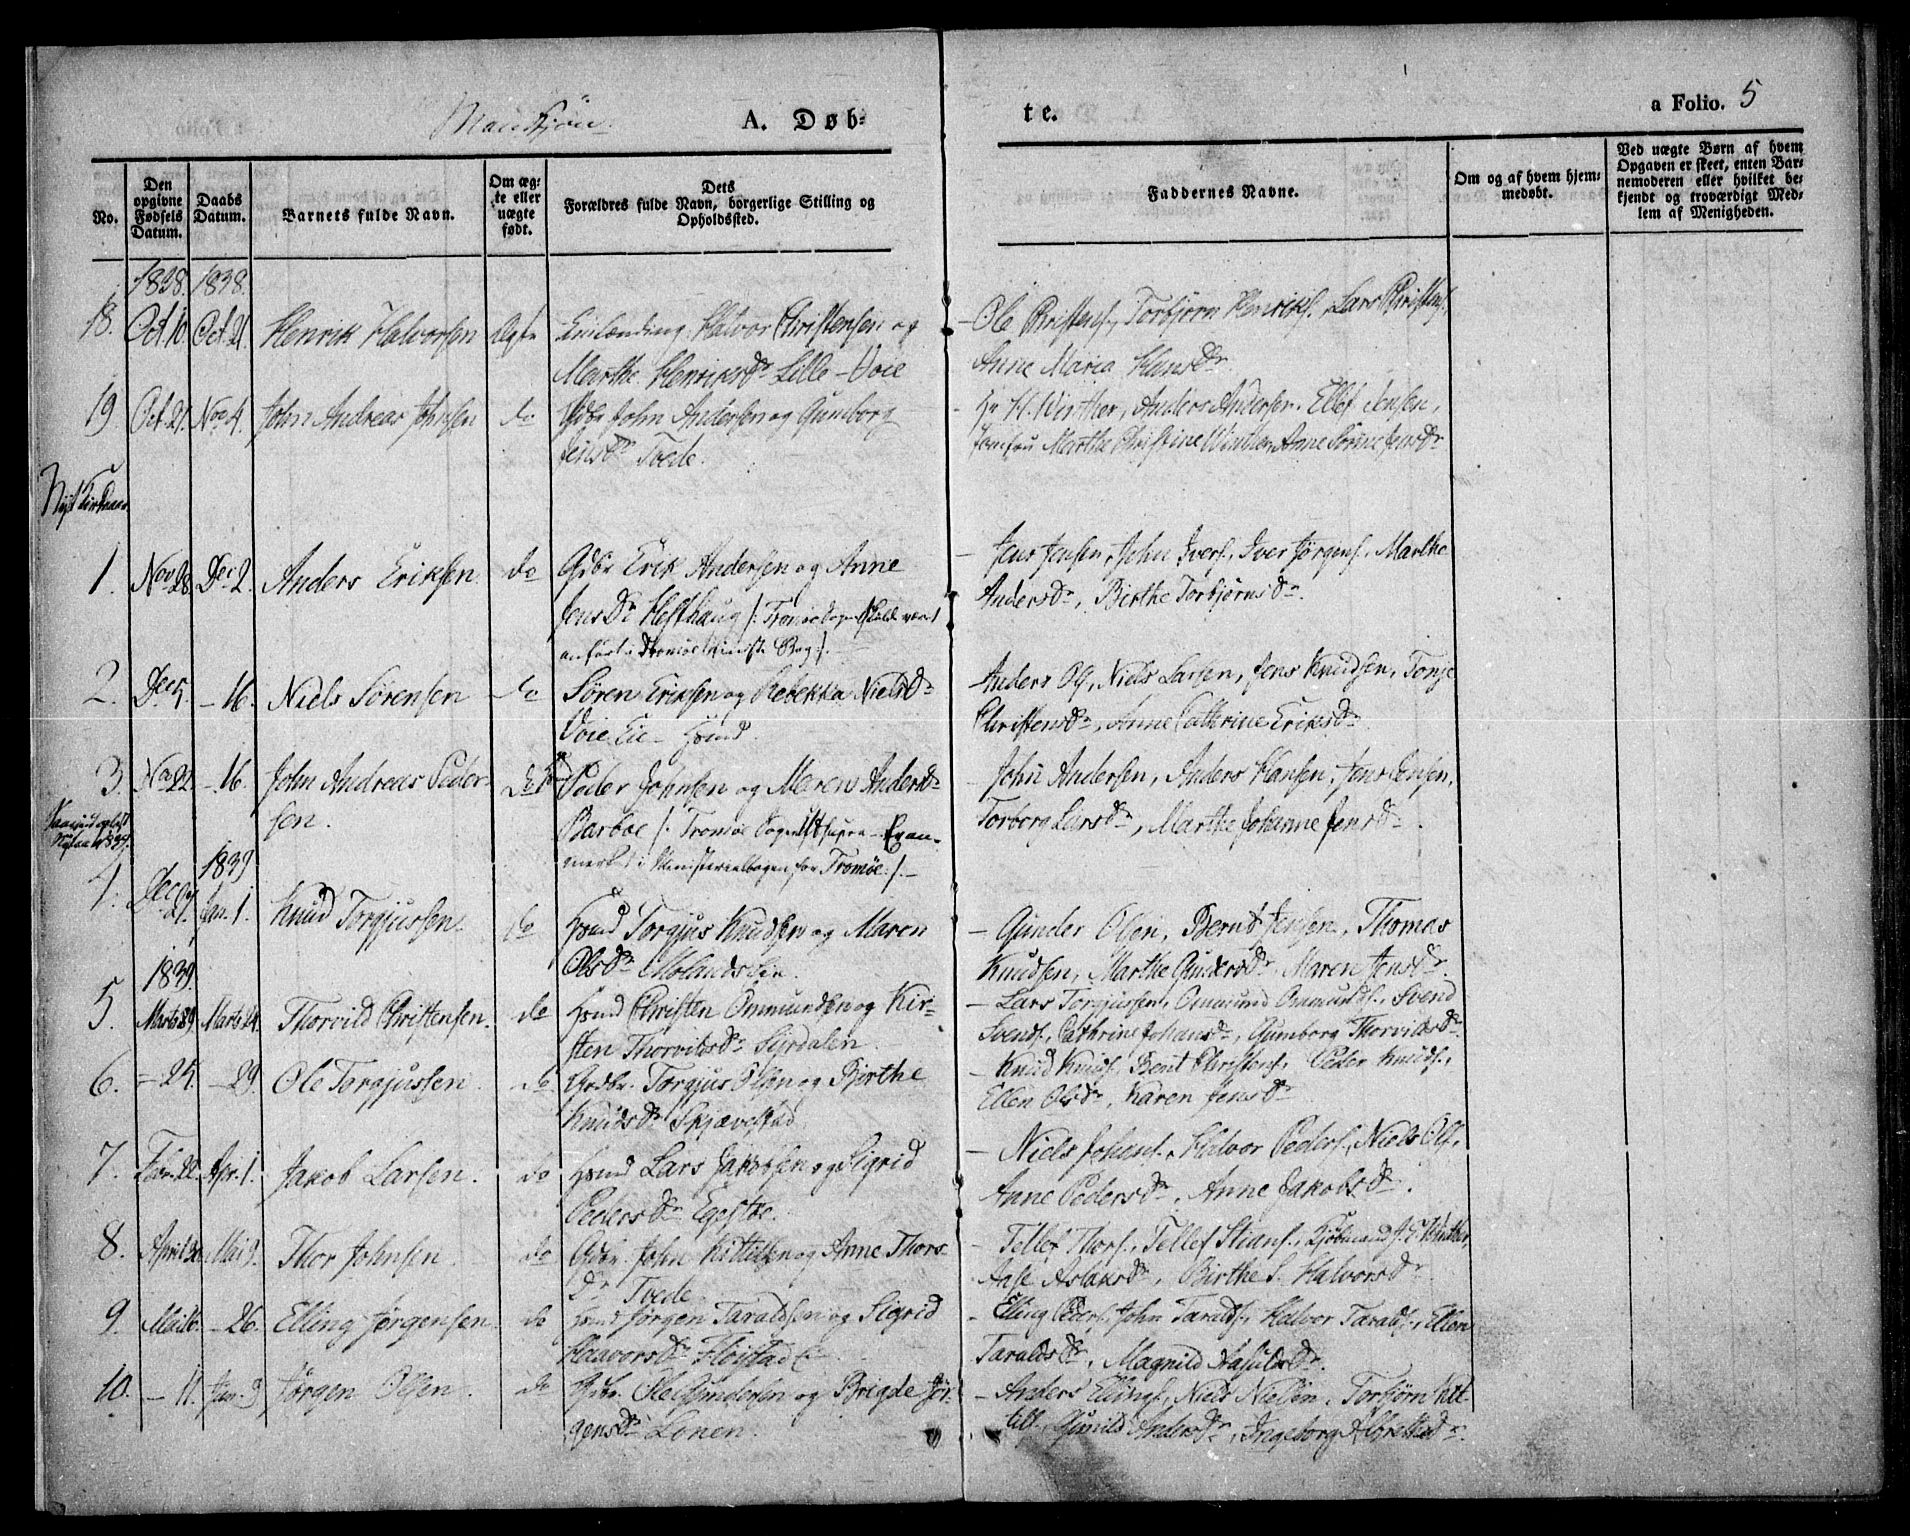 Mandkjøn.
A. Døb-
te.
a Folio. 5
No.
Den
opgivne
Fødsels
Datum.
Daabs
Datum.
Barnets fulde Navn.
Om æg-
te eller
uægte
født.
Dets
Forældres fulde Navn, borgerlige Stilling og
Opholdssted.
Faddernes Navne.
Om og af hvem hjem-
medøbt.
Ved uægte Børn af hvem
Opgaven er skeet, enten Bar-
nemoderen eller hvilket be-
kjendt og troværdigt Med-
lem af Menigheden.
1838. 1838.
18. Oct 10. Oct. 21. Henrik Halvorsen Ægte Halvor Christensen og
Marthe Henriksdr Lille-Voie
Ole Christens., Torbjørn Henriks., Lars Christens.,
Anne Maria Hansdr
19. Oct. 21. Nov 4. John Andreas Johnsen do Gdbr John Andersen og Gunborg
Jensdr Tvede.
Hr H. Winther, Anders Andersen, Ellef Jensen,
Jomfru Marthe Christine Winther, Anne Sørine Jensdr
Nyt Kirkeaar.
1. Nov 28. Dec 2. Anders Eriksen. do Gdbr Erik Andersen og Anne
Jensdr Hesthaug /: Tromøe Sogn skulde været
anført i Tromøe Minist. Bog :/.
Jens Jensen, John Ivers., Iver Jørgens., Marthe
Andersdr, Birthe Torbjørnsdr.
2. Dec 5. - 16. Niels Sørensen do Søren Eriksen og Rebekka Nielsdr
Voie Eie - Hsmd.
Anders Ols., Niels Larsen, Jens Knudsen, Tonje
Christensdr, Anne Cathrine Eriksdr
3. Nov 22. - 16. John Andreas Peder-
sen. do Peder Johnsen og Maren Andersdr
Barboe /: Tromøe Sogn Ut supra - Er an-
mærket i Ministerialbogen for Tromøe :/. -
- John Andersen, Anders Hansen, Jens Jensen,
Torborg Larsdr, Marthe Johanne Jensdr.
1839
4. Dec 27. Jan. 1. Knud Torgjussen. do Hsmd Torgjus Knudsen og Maren
Olsdr Molandsveen.
- Gunder Olsen, Bernt Jensen, Thomas
Knudsen, Marthe Gundersdr, Maren Jensdr.
1839.
5. Marts Marts 24. Thorvild Christensen. do Hsmd Christen Ommundsen og Kir-
sten Thorvildsdr Lyrdalen.
- Lars Torgjussen, Ommund Ommunds., Svend
Svends., Cathrine Johansdr, Gunborg Thorvildsdr
6. - 24. - 29. Ole Torgjussen. do Grdbr. Torgjus Olsen og Bjerthe
Knudsdr Skjævestad
- Knud Knuds., Bent Christens., Peder Knuds.,
Ellen Olsdr, Karen Jensdr
7. Febr. 22. Apr. 1. Jakob Larsen. do Hsmd Lars Jakobsen og Sigrid
Pedersdr Egestøe.
- Niels Johans., Halvor Peders., Niels Ols.,
Anne Pedersdr, Anne Jakobsdr.
8. April 30. Mai 9. Thor Johnsen. do Gdbr. John Kittilsen og Anne Thors-
dr Tvede.
- Tellef Thors., Tellef Stians., Kjøbmand H. C. Winther,
Aase Aslaksdr, Birthe S. Halvorsdr
9. Mai 6. - 26. Elling Jørgensen. do Hsmd Jørgen Taraldsen og Sigrid
Haavorsdr Fløistad E.
- Elling Peders., John Taralds., Halvor Taralds., Ellen
Taraldsdr, Magnild
10. - 11. Jun. 9 Jørgen Olsen. do Gdbr. Ole Gundersen og Brigde Jør-
gensdr Lonen.
- Anders Ellings., Niels Nielsen, Torbjørn Kit-
tils., Gunild Andersdr, Ingeborg Albretsdr.